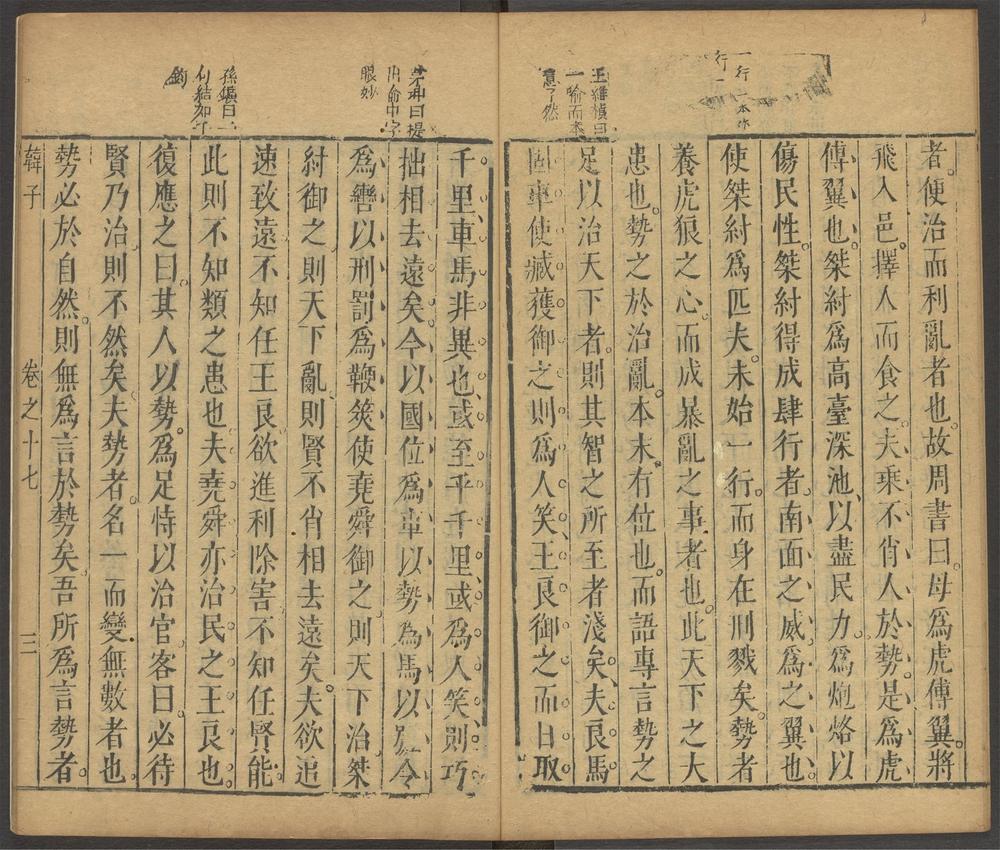 一行一本作
行一
王維楨曰
一喻而本
意了然
者便治而利亂者也故周書曰毋爲虎傅翼將
飛入邑擇人而食之夫乘不肖人於勢是爲虎
傅翼也桀紂爲高臺深池以盡民力爲炮烙以
傷民性桀紂得成肆行者南面之威爲之翼也
使桀紂爲匹夫未始一行而身在刑戮矣勢者
養虎狼之心而成暴亂之事者也此天下之大
患也勢之於治亂本末有位也而語專言勢之
足以治天下者則其智之所至者淺矣夫良馬
固車使臧獲御之則爲人笑王良御之而日取
曰提
出俞中字
眼妙
孫鑛曰一
句結如丁
鉤
千里車馬非異也或至乎千里或爲人笑則巧
拙相去遠矣今以國位爲車以勢爲馬以號令
爲轡以刑罰爲鞭筴使堯舜御之則天下治桀
紂御之則天下亂則賢不肖相去遠矣夫欲追
速致遠不知任王良欲進利除害不知任賢能
此則不知類之患也夫堯舜亦治民之王良也
復應之曰其人以勢爲足恃以治官客曰必待
賢乃治則不然矣夫勢者名一而變無數者也
勢必於自然則無爲言於勢矣吾所爲言勢者
韓子 卷之十七 三